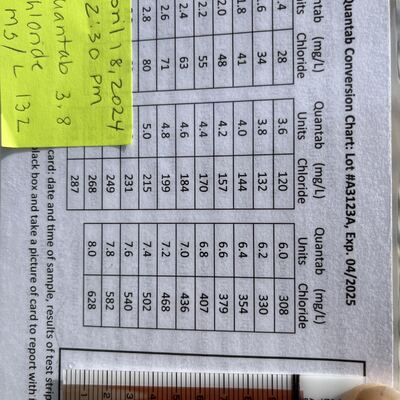 Quantab Conversion Chart: Lot #A3123A, Exp. 04/2025
ntab (mg/L) Quantab (mg/L) Quantab (mg/L)
nits Chloride Units Chloride Units Chloride
.4 28 3.6 120 6.0 308
.6 34 3.8 132 6.2 330
.8 41 4.0 144 6.4 354
2.0 48 4.2 157 6.6 379
2.2 55 4.4 170 6.8 407
2.4 63 4.6 184 7.0 436
2.6 71 4.8 199 7.2 468
2.8 80 5.0 215 7.4 502
231 7.6 540
249 7.8 582
268 8.0 628
287
18, 2024
2:30 pm
uantab 3.8
hloride
mg/L 132
card: date and time of sample, results of test strip
lack box and take a picture of card to report with